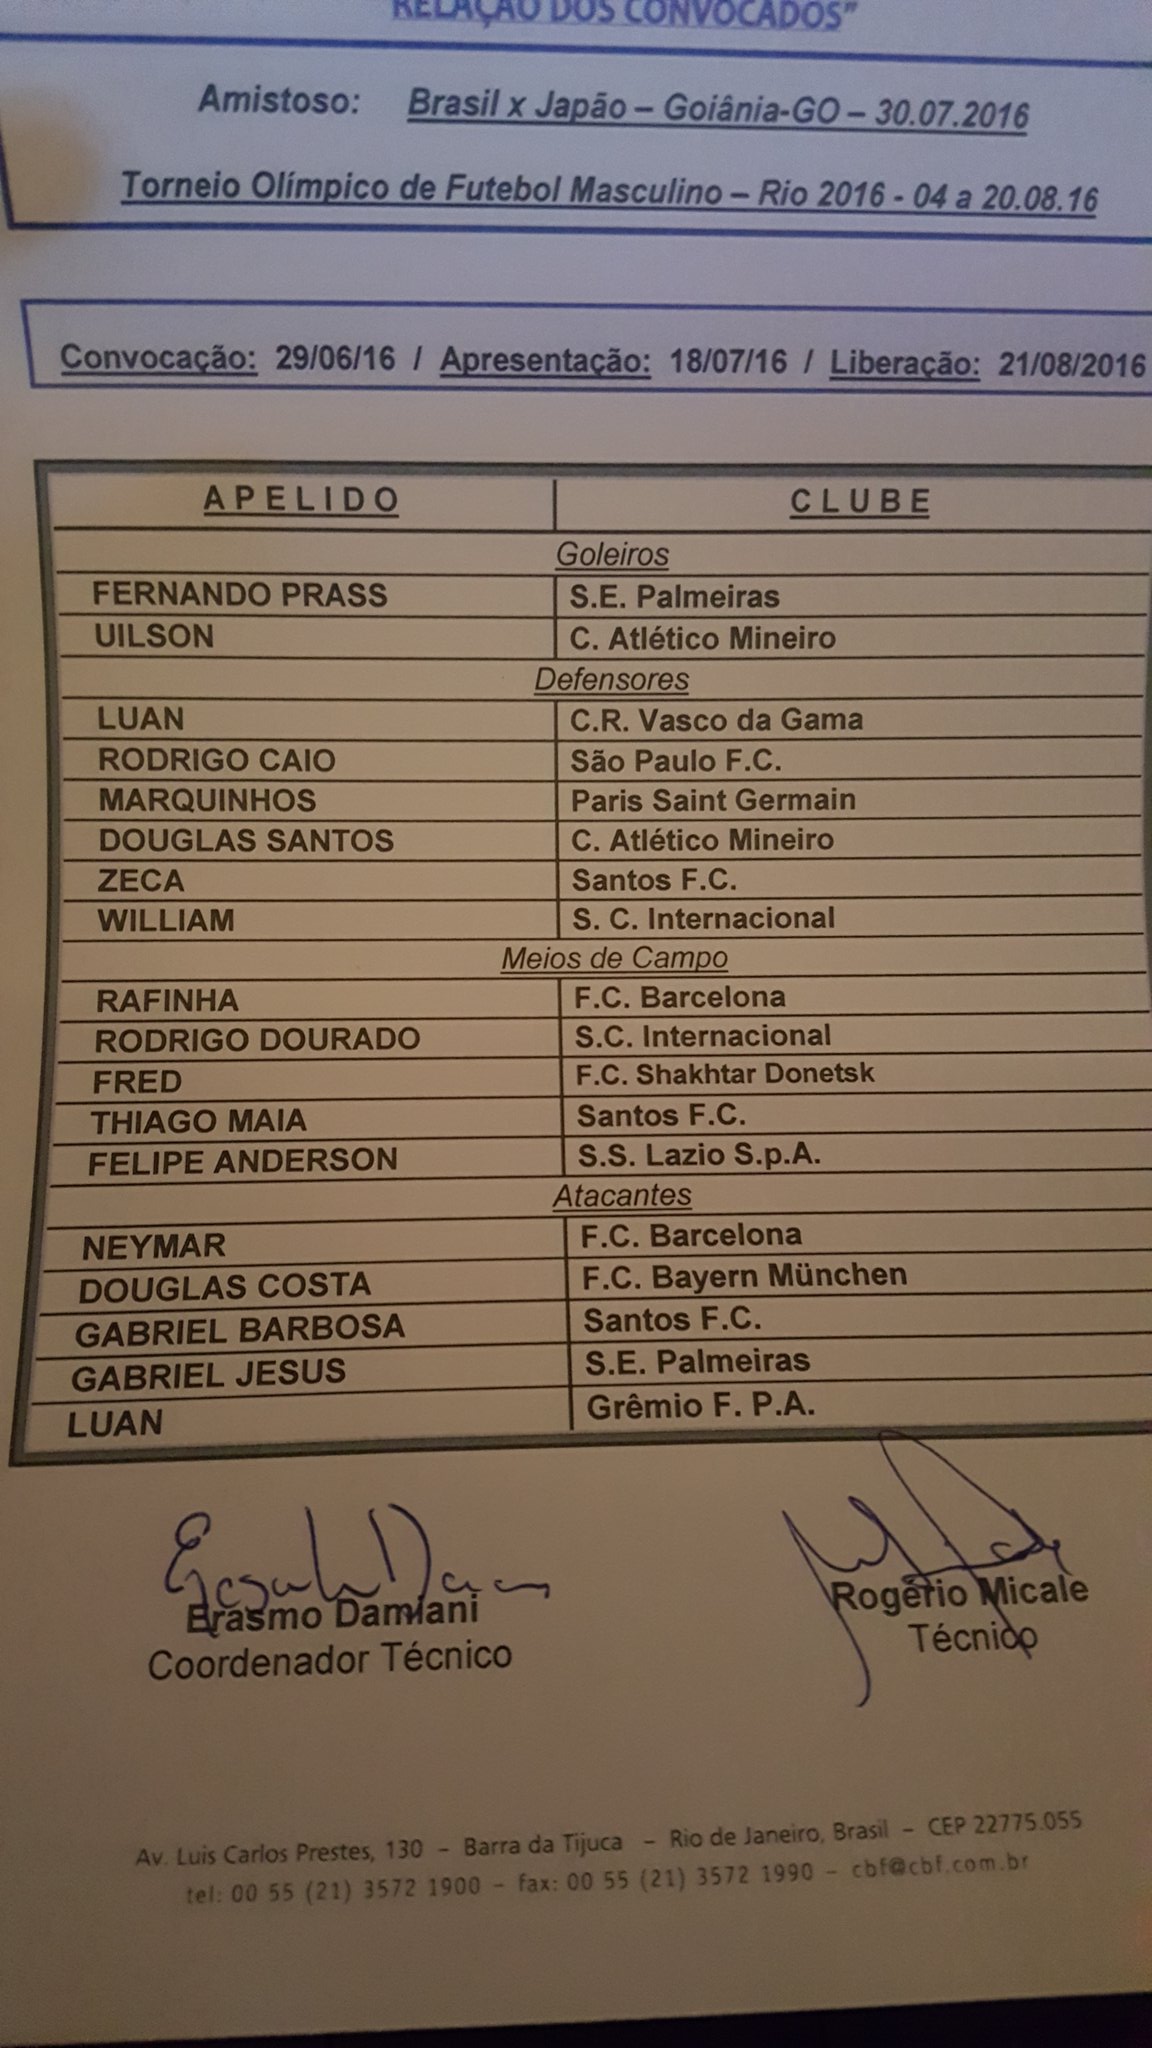 RELAÇÃO DOS CONVOCADOS"
Amistoso: Brasil x Japão – Goiânia-GO – 30.07.2016
Torneio Olímpico de Futebol Masculino – Rio 2016 - 04 a 20.08.16
Convocação: 29/06/16 / Apresentação: 18/07/16 / Liberação: 21/08/2016
APELIDO CLUBE
Goleiros
FERNANDO PRASS S.E. Palmeiras
UILSON C. Atlético Mineiro
Defensores
LUAN C.R. Vasco da Gama
RODRIGO CAIO São Paulo F.C.
MARQUINHOS Paris Saint Germain
DOUGLAS SANTOS C. Atlético Mineiro
ZECA Santos F.C.
WILLIAM S. C. Internacional
Meios de Campo
RAFINHA F.C. Barcelona
RODRIGO DOURADO S.C. Internacional
FRED F.C. Shakhtar Donetsk
THIAGO MAIA Santos F.C.
FELIPE ANDERSON S.S. Lazio S.p.A.
Atacantes
NEYMAR F.C. Barcelona
DOUGLAS COSTA F.C. Bayern München
GABRIEL BARBOSA Santos F.C.
GABRIEL JESUS S.E. Palmeiras
LUAN Grêmio F. P.A.
Erasmo Damiani Rogério Micale
Coordenador Técnico Técnico
Av. Luis Carlos Prestes, 130 – Barra da Tijuca – Rio de Janeiro, Brasil – CEP 22775.055
tel: 00 55 (21) 3572 1900 – fax: 00 55 (21) 3572 1990 – cbf@cbf.com.br